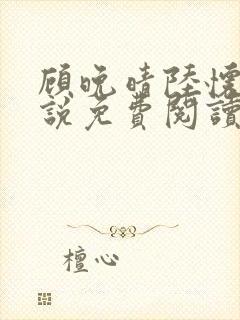 顾晚晴陸懷
說免費閱讀
檀心